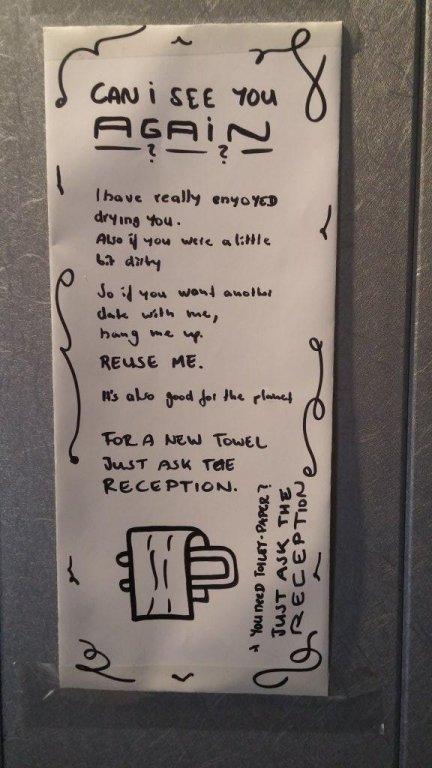 CAN i SEE YOU
AGAiN
? ?
I have really enyoYED
drying you.
Also if you were a little
bit dirty
So if you want another
date with me,
hang me up.
REUSE ME.
It's also good for the planet
FOR A NEW TOWEL
JUST ASK THE
RECEPTION.
+ YOU NEED TOILET-PAPER?
JUST ASK THE
RECEPTION